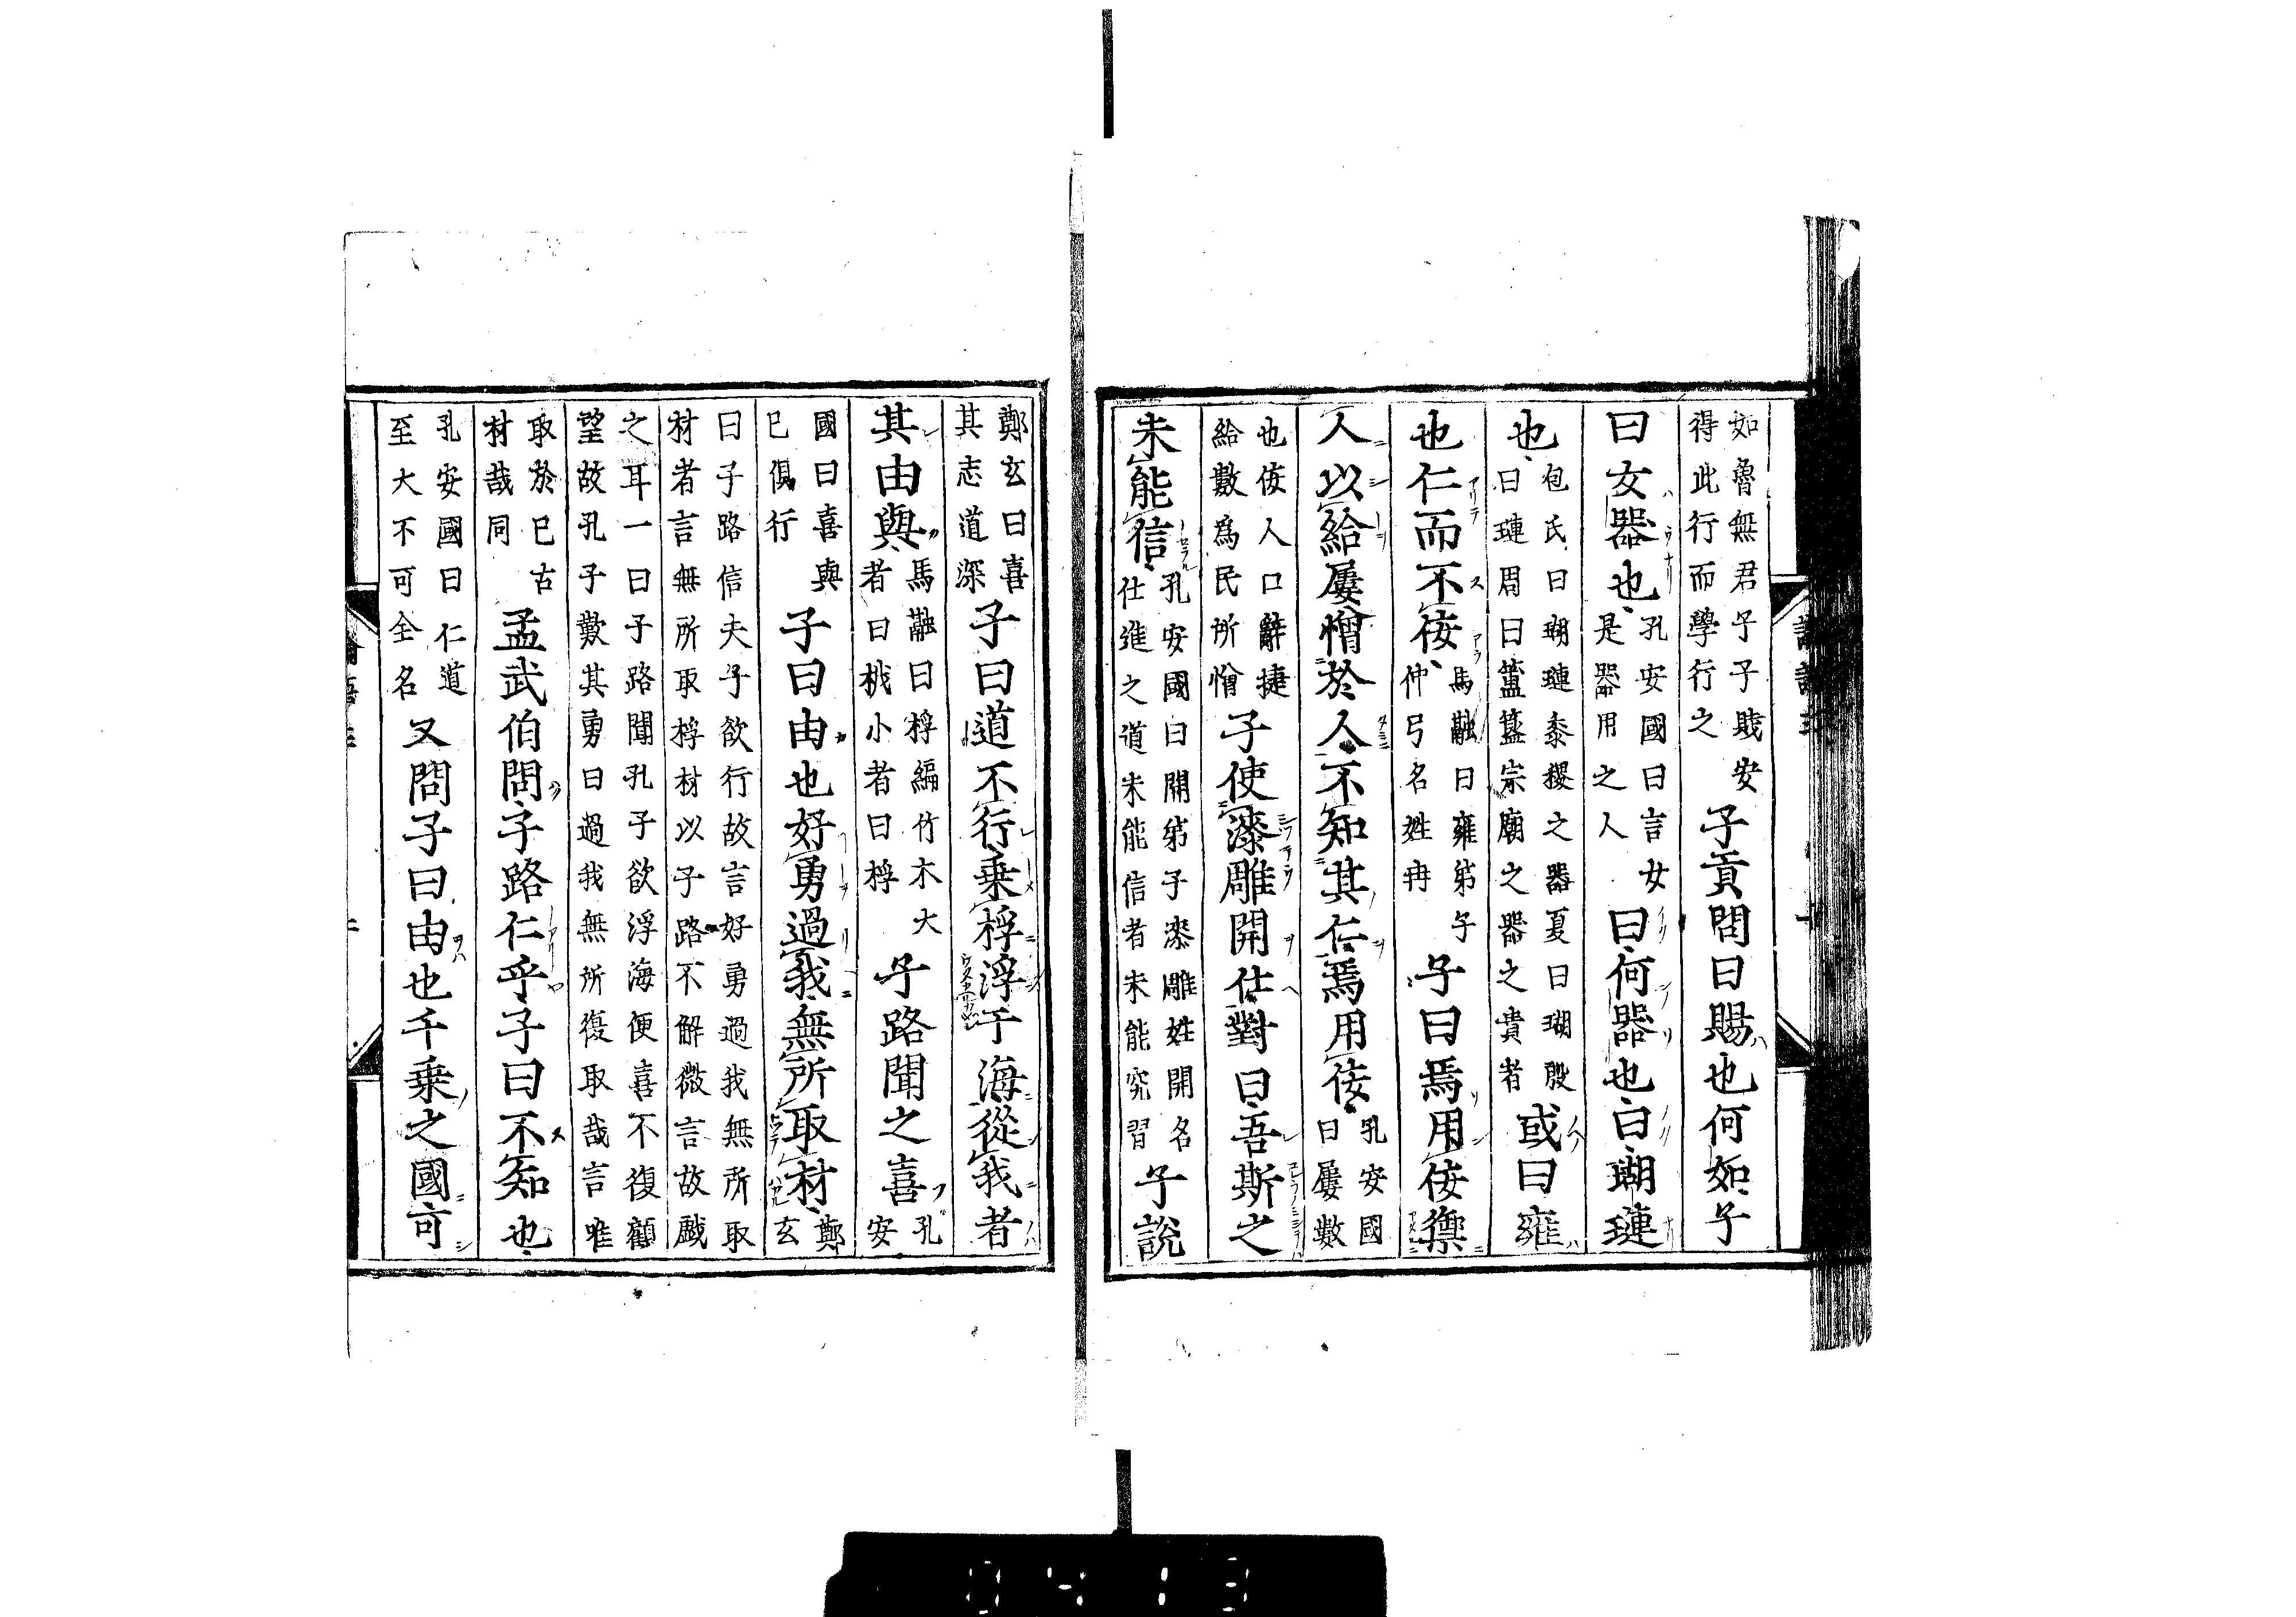 如魯無君子子賤安
得此行而學行之
子貢問曰賜也何如子
曰女器也
孔安國曰言女
是器用之人
曰何器也曰瑚璉
也
包氏曰瑚璉黍稷之器夏曰瑚殷
曰璉周曰簠簋宗廟之器之貴者
或曰雍
也仁而不佞
馬融曰雍弟子
仲弓名姓冉
子曰焉用佞禦
人以給屢憎於人不知其仁焉用佞
孔安國
曰屢數
也佞人口辭捷
給數為民所憎
子使漆雕開仕對曰吾斯之
未能信
孔安國曰開弟子漆雕姓開名
仕進之道未能信者未能究習
子說
鄭玄曰喜
其志道深
子曰道不行乗桴浮于海從我者
其由與
馬融曰桴編竹木大
者曰栰小者曰桴
子路聞之喜
孔安
國曰喜與
已俱行
子曰由也好勇過我無所取材
鄭玄
曰子路信夫子欲行故言好勇過我無所取
材者言無所取桴材以子路不解微言故戲
之耳一曰子路聞孔子欲浮海便喜不復顧
望故孔子歎其勇曰過我無所復取哉言唯
取於已古
材哉同
孟武伯問子路仁乎子曰不知也
孔安國曰仁道
至大不可全名
又問子曰由也千乗之國可
0413